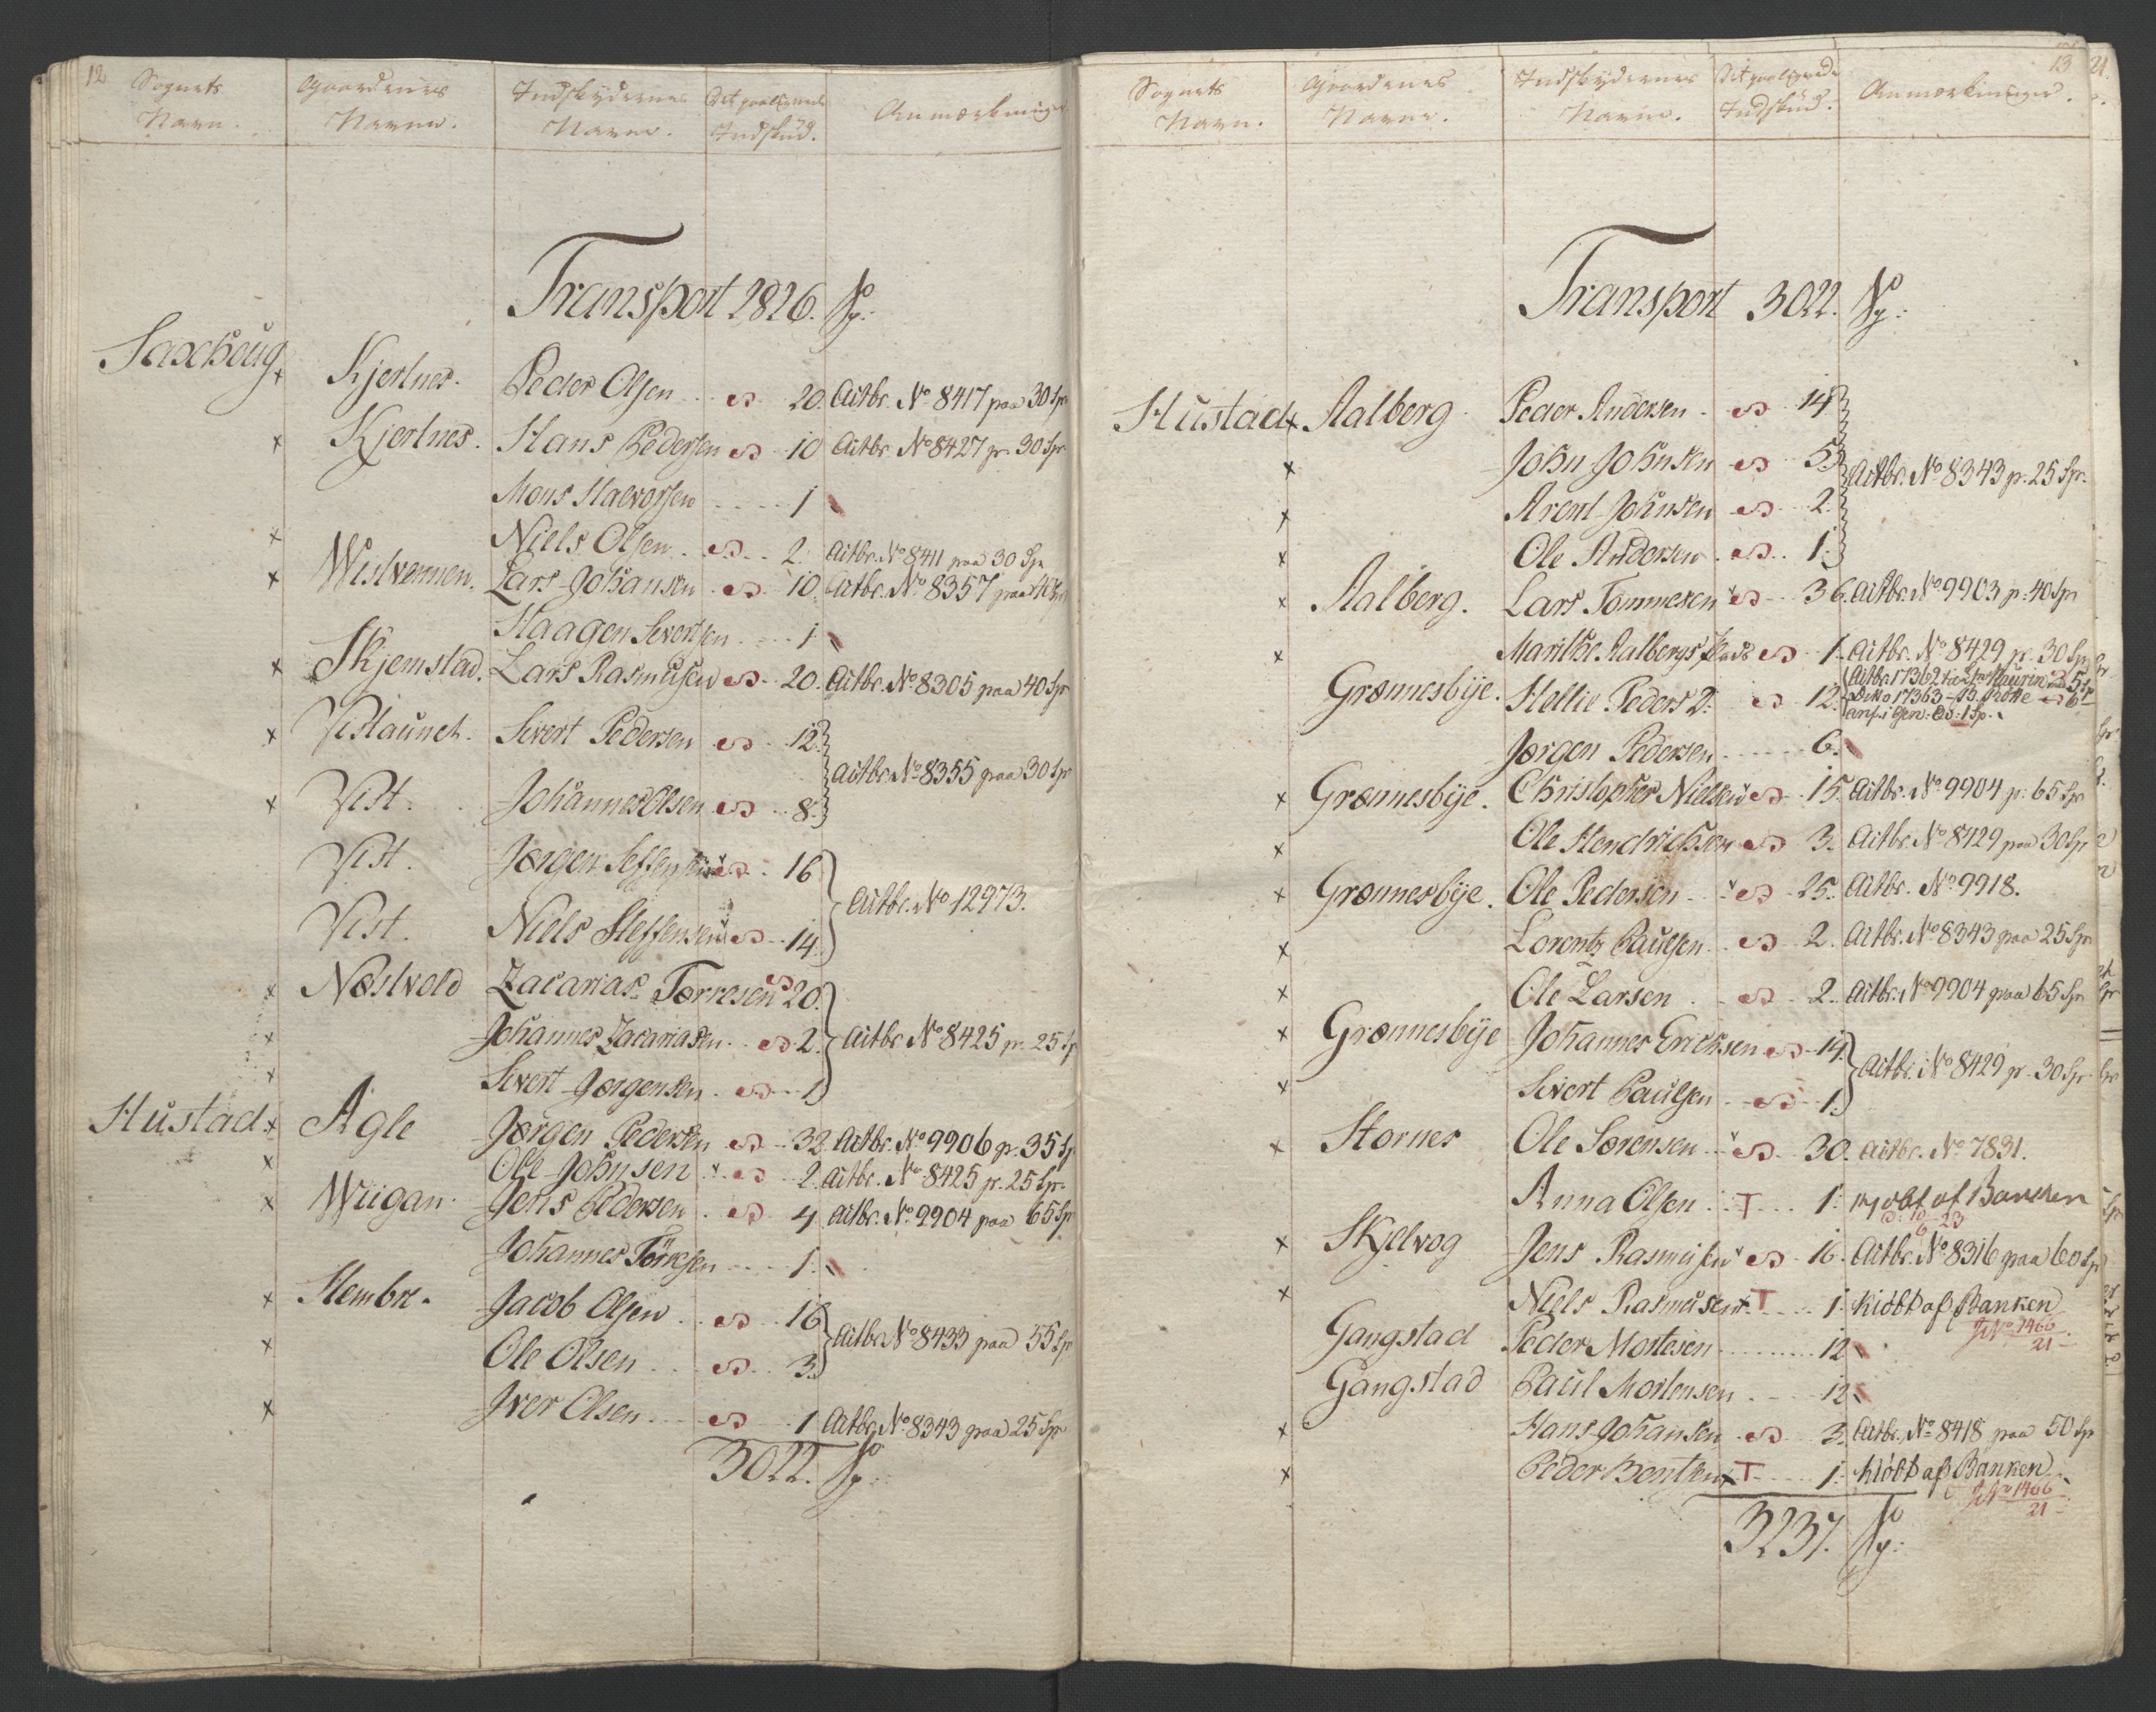 12
Sognets Navn.
Gaardenes Navne.
Indskydernes Navne.
Det paalignede Indskud.
Anmærkninger
Transport 2826. Sp:
Saxhoug × Kjerlnes. Peder Olsen 20. Actbr. No 8417 paa 30 Sp
× Kjerlnes. Hans Pedersen 10 Actbr. No 8427 p. 30 Sp
Mons Halvorsen 1
× Niels Olsen 2. Actbr. No 8411 paa 30 Sp
× Lars Johansen 10. Actbr. No 8357 paa 40
Haagen Sivertsen 1
× Skjemstad. Lars Rasmusen 20. Actbr. No 8305 paa 40 Sp
× Sivert Pedersen 12
Actbr. No 8355 paa 30 Sp
× Vist. Johannes Olsen 8
Vist. Jørgen Steffensen 16
Actbr. No 12973.
Vist. Niels Steffensen 14
× Næstvold Zacarias Torresen 20.
× Johannes Zacariasen 2. Actbr No 8425 p. 25 Sp
× Sivert Jørgensen 1
Hustad × Agle Jørgen Pedersen 32. Actbr. No 9906 p. 35 Sp
× Ole Johnsen 2. Actbr. No 8425 p. 25 Sp.
× Wiigan Jens Pedersen 4 Actbr. No 9904 paa 65 Sp
Johannes 1.
× Hembre. Jacob Olsen 16
Actbr. No 8433 paa 55 Sp
× Ole Olsen 3
× Iver Olsen 1 Actbr. No 8343 paa 25 Sp
3022. Sp:
13
Sognets Navn.
Gaardenes Navne.
Indskydernes Navne.
Det paalignede Indskud.
Anmærkninger.
Transport 3022. Sp:
Hustad × Aalberg Peder Andersen 14
× John Johnsen 5. Actbr. No 8343 p. 25 Sp.
× Arent Johnsen 2.
× Ole Andersen 1.
× Aalberg. Lars Tommesen 36. Actbr. No 9903 p. 40 Sp
× Marithe Aalbergs 1. Actbr. No 8429 p. 30 Sp
Actbr. 17362 5 Sp
Grønnesbye. Hellie Peders D: 12. Ditto 17363 6
1 Sp.
Jørgen Pedersen 6.
× Grønnesbye. Christopher Nielsen 15. Actbr. No 9904 p. 65 Sp
× Ole Hendrichsen 3. Actbr. No 8429 paa 30 Sp
× Grønnesbye. Ole Pedersen 25. Actbr. No 9918.
× Lorentz Paulsen 2. Actbr. No 8343 paa 25 Sp
× Ole Larsen 2. Actbr. No 9904 paa 65 Sp
× Grønnesbye Johannes Ericksen 14
Actbr. No 8429 p. 30 Sp.
× Sivert Paulsen 1.
× Stornes Ole Sørensen 30. Actbr. No 7831.
Anna Olsen T 1. kjøbt af Bancken
× Skjelvog Jens Rasmusen 16. Actbr. No 8316 paa 60 Sp
× Niels Rasmusen T 1. Kiøbt af Banken
No 1466
21
Gangstad Peder Mortesen 12
Gangstad Paul Mortensen 12
× Hans Johansen 3. Actbr. No 8418 paa 50 Sp
× Peder Bentsen T 1. Kiøbt af Banken
No 1466
21
3237. Sp: